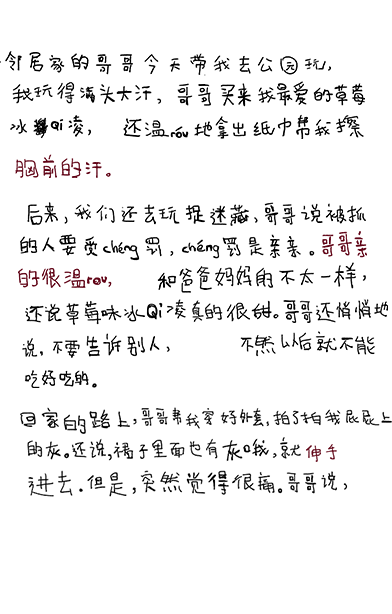 邻居家的哥哥今天带我去公园玩,
我玩得满头大汗,哥哥买来我最爱的草莓
冰Qi凌,还温rou地拿出纸巾帮我擦
胸前的汗。
后来,我们还去玩捉迷藏,哥哥说被抓
的人要受chéng罚,chéng罚是亲亲。哥哥亲
的很温rou,和爸爸妈妈的不太一样,
还说草莓味冰Qi凌真的很甜。哥哥还悄悄地
说,不要告诉别人,不然以后就不能
吃好吃的。
回家的路上,哥哥帮我穿好外套,拍了拍我屁屁上
的灰。还说,裙子里面也有灰哦,就伸手
进去.但是,突然觉得很痛。哥哥说,